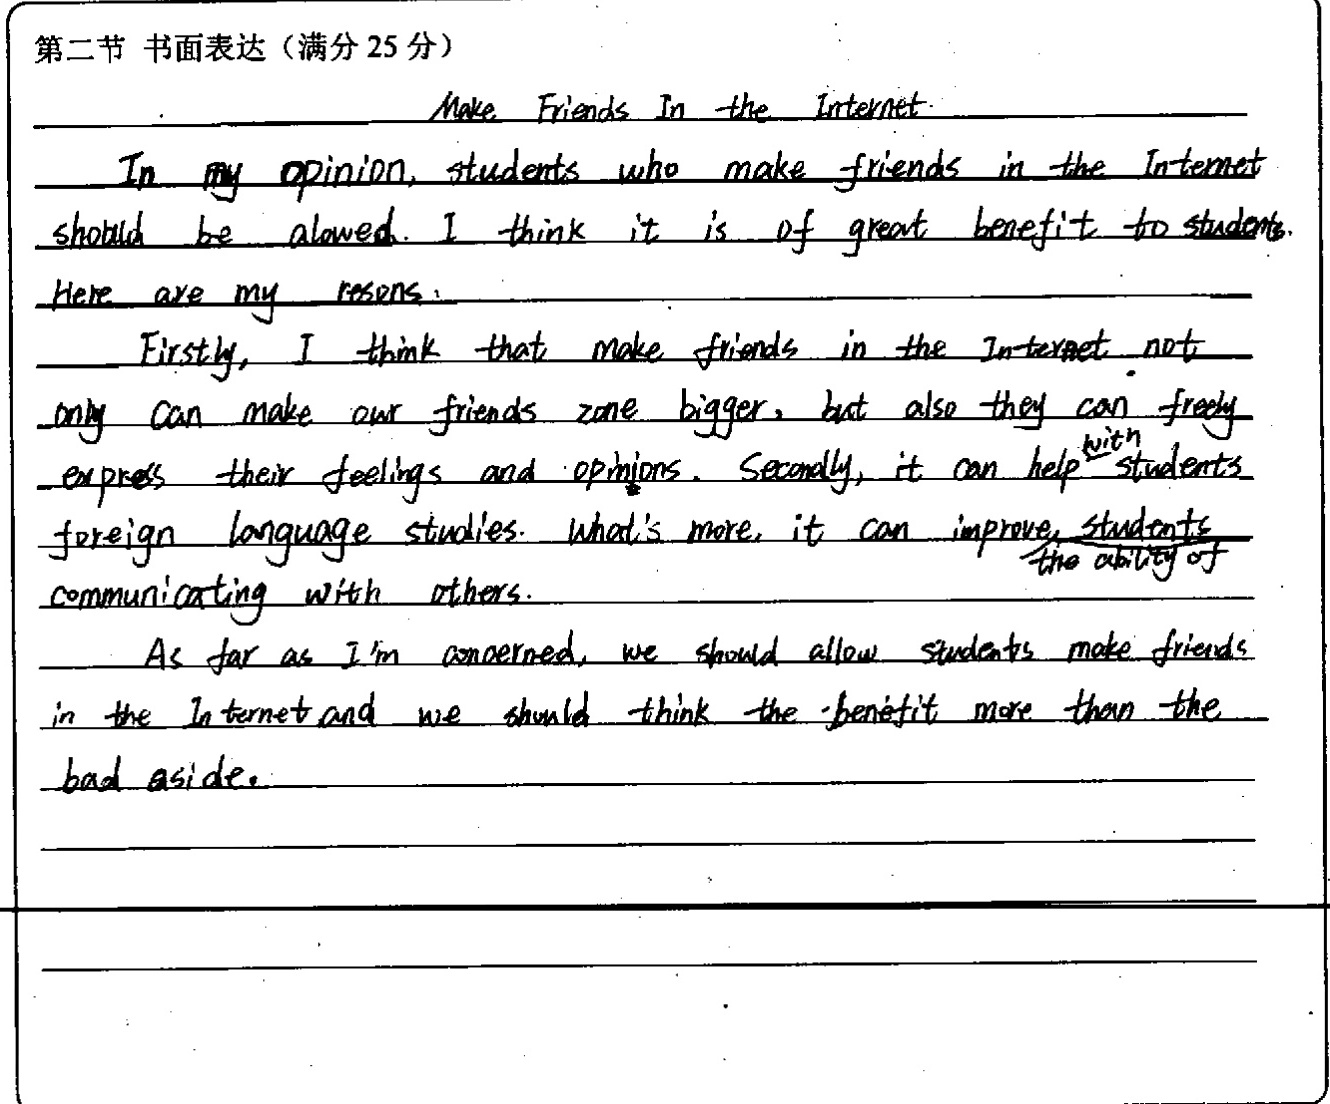 第二节 书面表达（满分 25 分）
Make Friends In the Internet.
In my opinion, students who make friends in the Internet
should be alowed. I think it is of great benefit to students.
Here are my resons.
Firstly, I think that make friends in the Internet not
only can make our friends zone bigger, but also they can freely
express their feelings and opinions. Secondly, it can help with students
foreign language studies. What's more, it can improve students
the ability of
communicating with others.
As far as I'm concerned, we should allow students make friends
in the Internet and we should think the benefit more than the
bad aside.